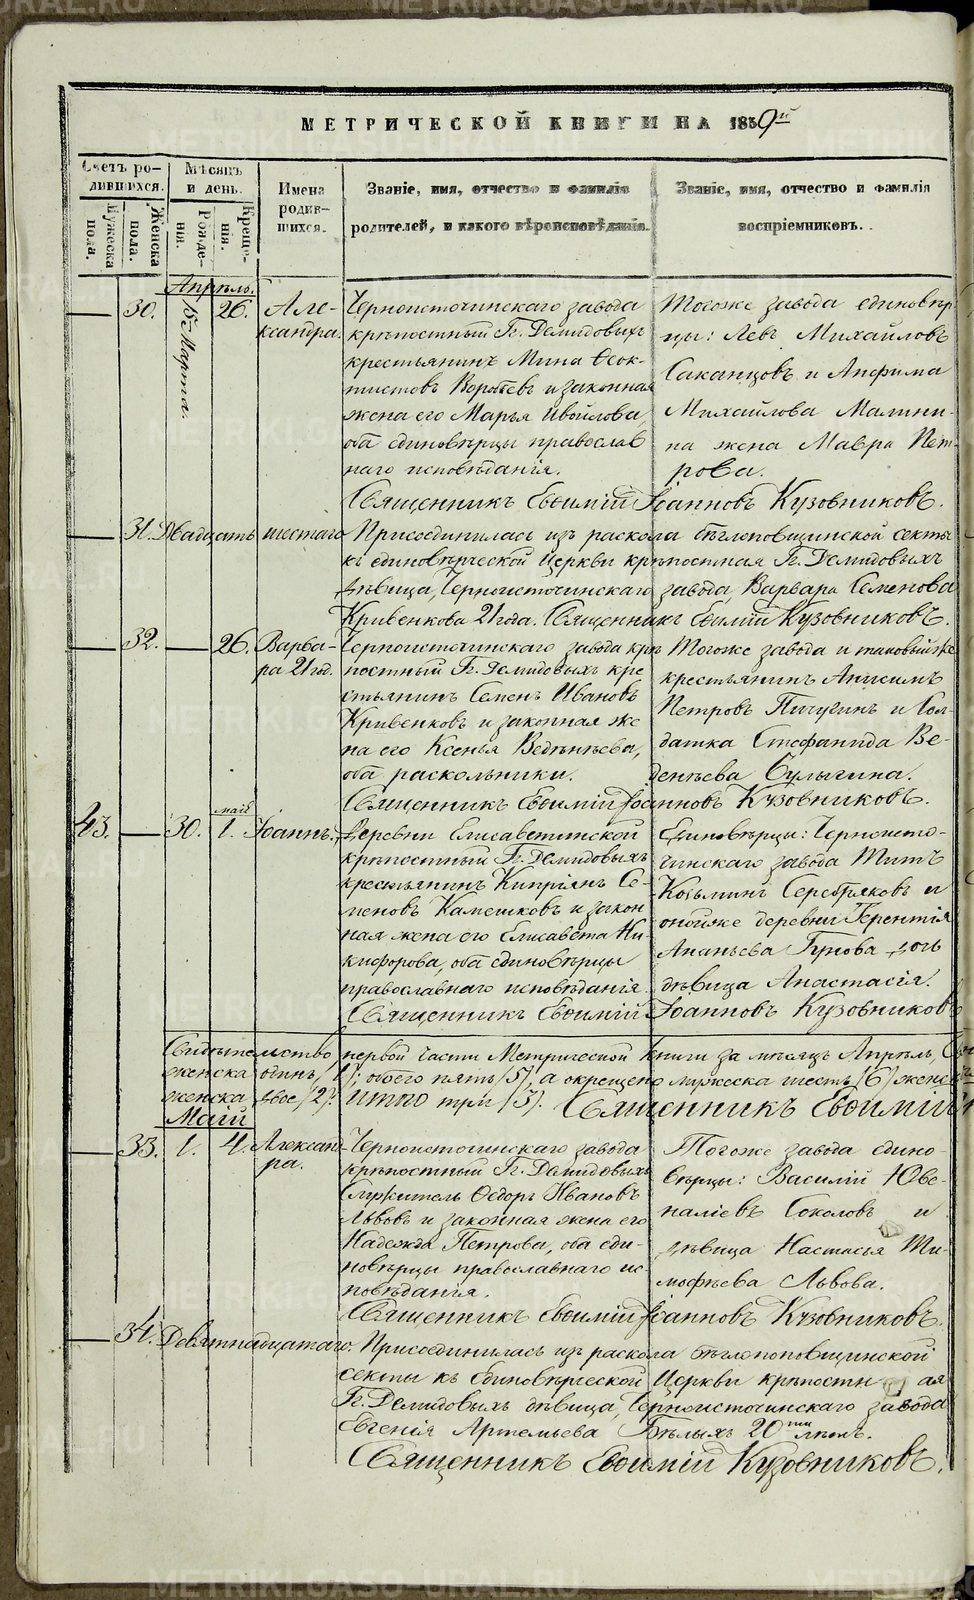 МЕТРИЧЕСКОЙ КНИГИ НА 1859й
Счетъ ро-
дившихся.
Мужеска
пола.
Женска
пола.
Мѣсяцъ
и день.
Рожде-
нія.
Креще-
нія.
Имена
родив-
шихся.
Званіе, имя, отчество и фамилія
родителей, и какого вѣроисповѣданія.
Званіе, имя, отчество и фамилія
воспріемниковъ.
Апрѣль.
30.
15 Марта.
26.
Але-
ксандра.
Черноисточинскаго завода
крѣпостный Гг. Демидовыхъ
крестьянинъ Мина Ѳеок-
тистовъ Воробьевъ и законная
жена его Марья Ивойлова,
оба единовѣрцы православ
наго исповѣданія.
Тогоже завода единовѣр
цы: Левъ Михайловъ
Саканцовъ и Анфима
Михайлова Малини-
на жена Мавра Пет-
рова.
Священникъ Евѳимій Іоанновъ Кузовниковъ.
31. Двадцать шестаго Присоединилась изъ раскола бѣглопоповщинской секты
къ единовѣрческой Церкви крѣпостная Гг. Демидовыхъ
дѣвица, Черноисточинскаго завода, Варвара Семенова
Кривенкова 21 года. Священникъ Евѳимій Кузовниковъ.
32.
26.
Варва-
ра 21 год.
Черноисточинскаго завода крѣ
постный Гг. Демидовыхъ кре
стьянинъ Семенъ Ивановъ
Кривенковъ и законная же
на его Ксенья Веденѣева,
оба раскольники.
Тогоже завода и таковый же
крестьянинъ Анисимъ
Петровъ Пичугинъ и Сол-
датка Стефанида Ве-
денѣева Булыгина.
Священникъ Евѳимій Іоанновъ Кузовниковъ.
43.
30.
мая
1.
Іоаннъ.
Деревни Елисаветинской
крѣпостный Гг. Демидовыхъ
крестьянинъ Кипріянъ Се-
меновъ Камешковъ и закон
ная жена его Елисавета Ни-
кифорова, оба единовѣрцы
православнаго исповѣданія
Единовѣрцы: Черноисто-
чинскаго завода Титъ
Козьминъ Серебряковъ и
онойже деревни Терентія
Ананьева Гунова дочь
дѣвица Анастасія.
Священникъ Евѳимій Іоанновъ Кузовниковъ
Свидѣтельство первой части Метрической книги за мѣсяцъ Апрѣль,
женска одинъ /1/; обоего пять /5/, а окрещено мужеска шесть /6/ женск
женска двое /2/. Итого три /3/. Священникъ Евѳимій
Маій
33.
1.
4.
Александ-
ра.
Черноисточинскаго завода
крѣпостный Гг. Демидовыхъ
Служитель Ѳедоръ Ивановъ
Львовъ и законная жена его
Надежда Петрова, оба еди-
новѣрцы православнаго ис-
повѣданія.
Тогоже завода едино-
вѣрцы: Василій Юве-
наліевъ Соколовъ и
дѣвица Настасья Ти-
мофѣева Львова.
Священникъ Евѳимій Іоанновъ Кузовниковъ.
34. Девятнадцатаго. Присоединилась изъ раскола бѣглопоповщинской
секты къ Единовѣрческой Церкви крѣпостн ая
Гг. Демидовыхъ дѣвица, Черноисточинскаго завода
Евгенія Артемьева Бѣлыхъ 20ти лѣтъ.
Священникъ Евѳимій Кузовниковъ.
METRIKI.GASO-URAL.RU